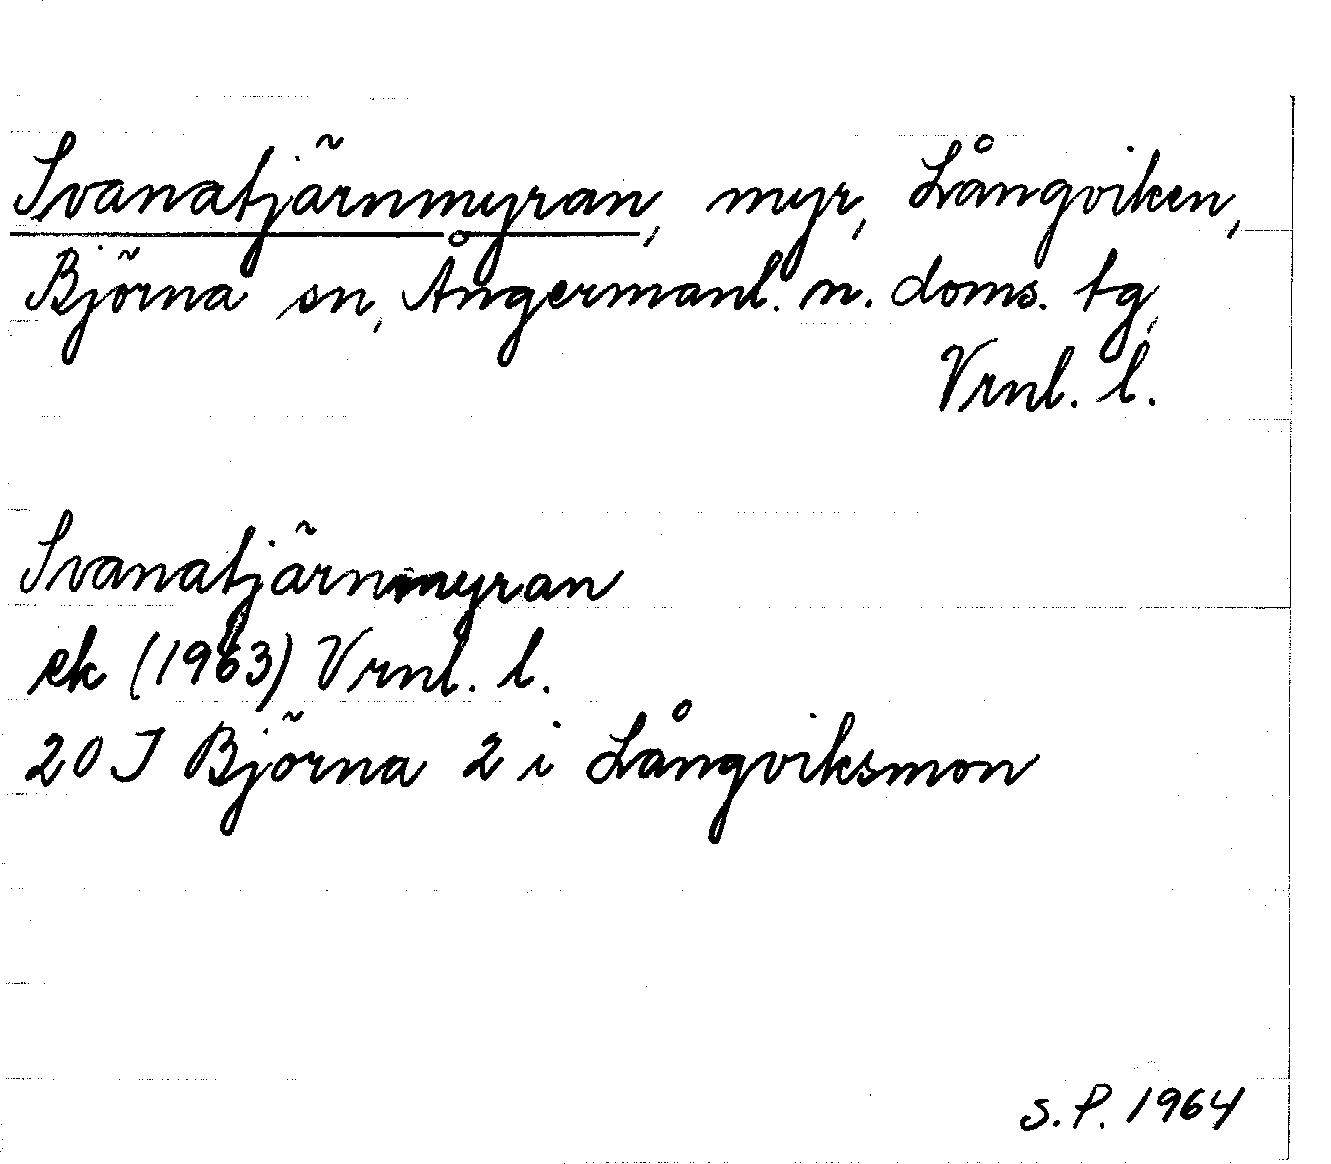 Svanatjärnmyran, myr, Långviken,
Björna sn, Ångermanl. n. doms. tg,
Vrnl. l.
Svanatjärnmyran
ek (1963) Vrnl. l.
20 J Björna 2 i Långviksmon
S.P. 1964